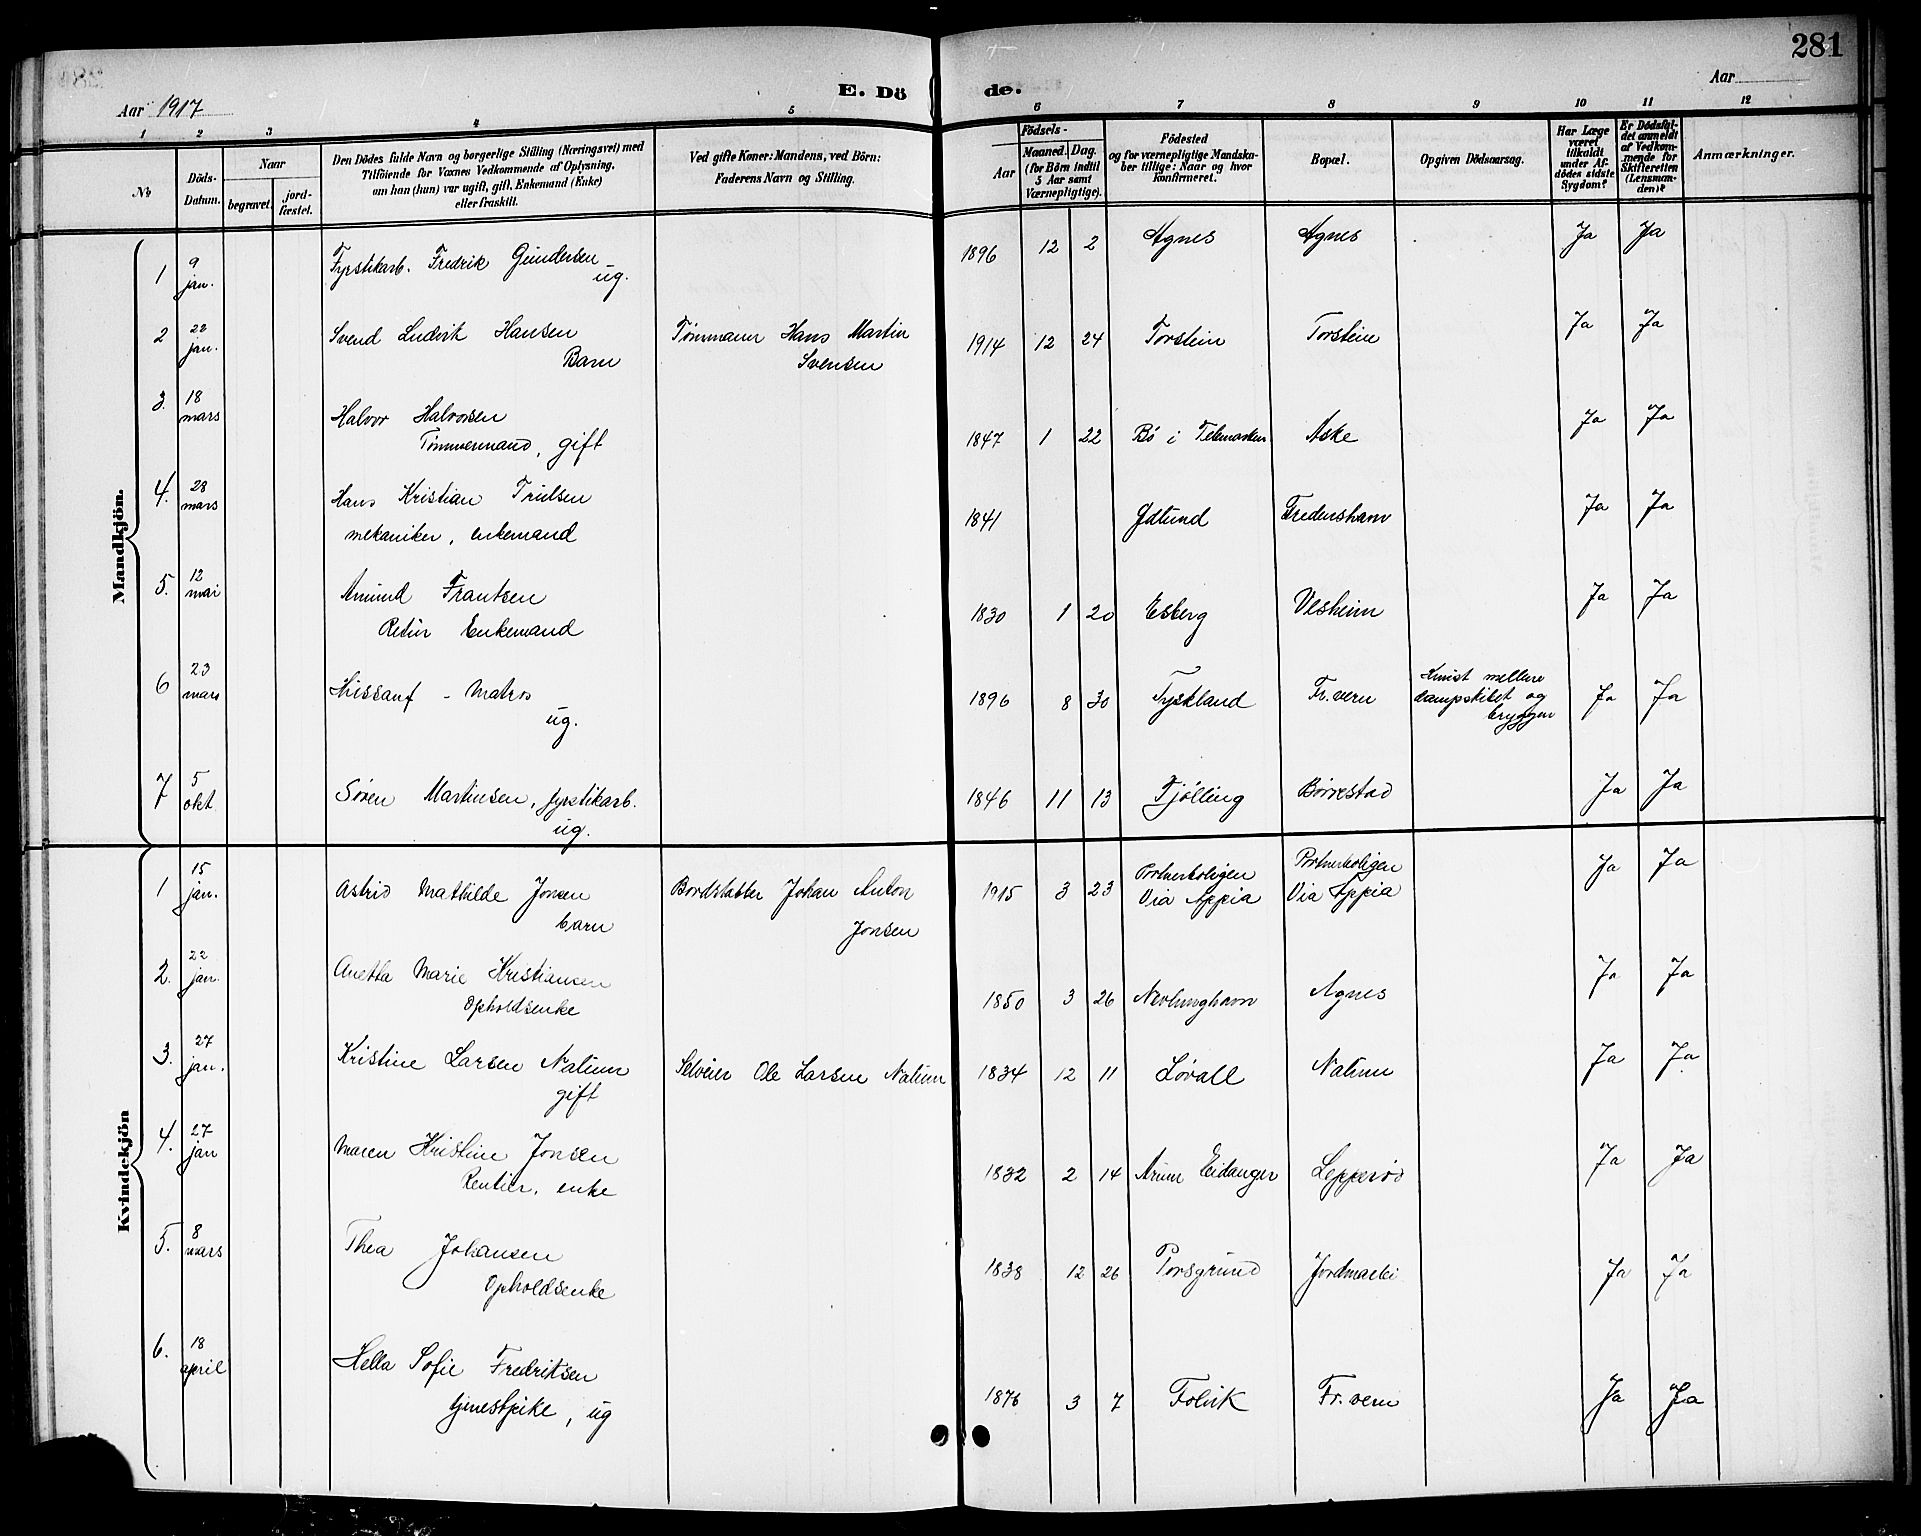 281
Aar 1917
E. Dö de.
Aar
1 2 3 4 5 6 7 8 9 10 11 12
No
Döds-Datum.
Naar
begravet.
jordfæstet.
Den Dödes fulde Navn og borgerlige Stilling (Næringsvei) med
Tilföiende for Voxnes Vedkommende af Oplysning,
om han (hun) var ugift, gift, Enkemand (Enke)
eller fraskilt.
Ved gifte Koner: Mandens, ved Börn:
Faderens Navn og Stilling.
Födsels-
Aar
Maaned. Dag.
(for Börn indtil
5 Aar samt
Værnepligtige).
Födested
og for værnepligtige Mandska-
ber tillige: Naar og hvor
konfirmeret.
Bopæl.
Opgiven Dödsaarsag.
Har Læge
været
tilkaldt
under Af-
dödes sidste
Sygdom?
Er Dödsfal-
det anmeldt
af Vedkom-
mende for
Skifteretten
(Lensman-
den)?
Anmærkninger.
Mandkjön.
1 9 jan. Fyrstikarb. Fredrik Gundersen ug. 1896 12 2 Agnes Agnes Ja Ja
2 22 jan. Svend Ludvik Hansen Barn Tømmerm Hans Martin Svensen 1914 12 24 Torstein Torstein Ja Ja
3. 18 mars Halvor Halvorsen Tømmermand, gift 1847 1 22 Bö i Telemarken Aske Ja Ja
4. 28 mars Hans Kristian Trulsen mekaniker, enkemand 1841 Ødlund Fredenshavn Ja Ja
5. 12 mai Amund Frantsen Enkemand 1830 1 20 Esberg Vesheim Ja Ja
6 23 mars - Matros ug. 1896 8 30 Tyskland Fr.vern Knust mellem dampskibet og bryggen Ja Ja
7 5 okt. Søren Martinsen, fyrstikarb. ug. 1846 11 13 Tjölling Börrestad Ja Ja
Kvindekjön
1 15 jan. Astrid Mathilde Jonsen barn Bordstabler Johan Anton Jonsen 1915 3 23 Portnerboligen Via Appia Portnerboligen Via Appia Ja Ja
2. 22 jan. Anetta Marie Kristiansen Opholdsenke 1850 3 26 Nevlunghavn Agnes Ja Ja
3. 27 jan. Kristine Larsen Nalum gift Selveier Ole Larsen Nalum 1834 12 11 Løvall Nalum Ja Ja
4. 27 jan Maren Kristine Jonsen Rentier, enke 1832 2 14 Eidanger Lepperød Ja Ja
5. 8 mars Thea Johansen Opholdsenke 1838 12 26 Porsgrund Ja Ja
6. 18 april Hella Sofie Fredriksen tjenestpike, ug 1876 3 7 Folvik Fr.vern Ja Ja